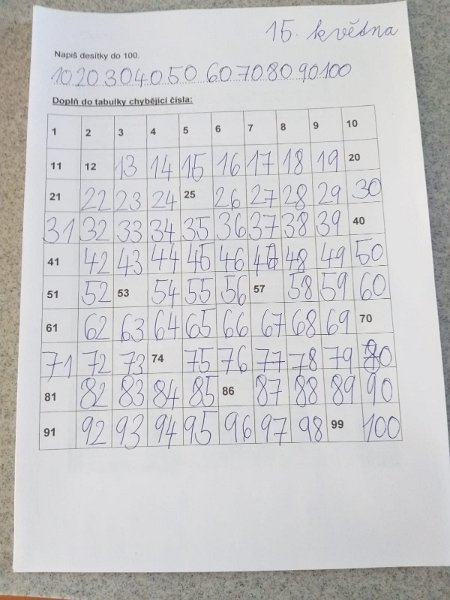 15. května
Napiš desítky do 100.
10 20 30 40 50 60 70 80 90 100
Doplň do tabulky chybějící čísla:
1 2 3 4 5 6 7 8 9 10
11 12 13 14 15 16 17 18 19 20
21 22 23 24 25 26 27 28 29 30
31 32 33 34 35 36 37 38 39 40
41 42 43 44 45 46 47 48 49 50
51 52 53 54 55 56 57 58 59 60
61 62 63 64 65 66 67 68 69 70
71 72 73 74 75 76 77 78 79 80
81 82 83 84 85 86 87 88 89 90
91 92 93 94 95 96 97 98 99 100